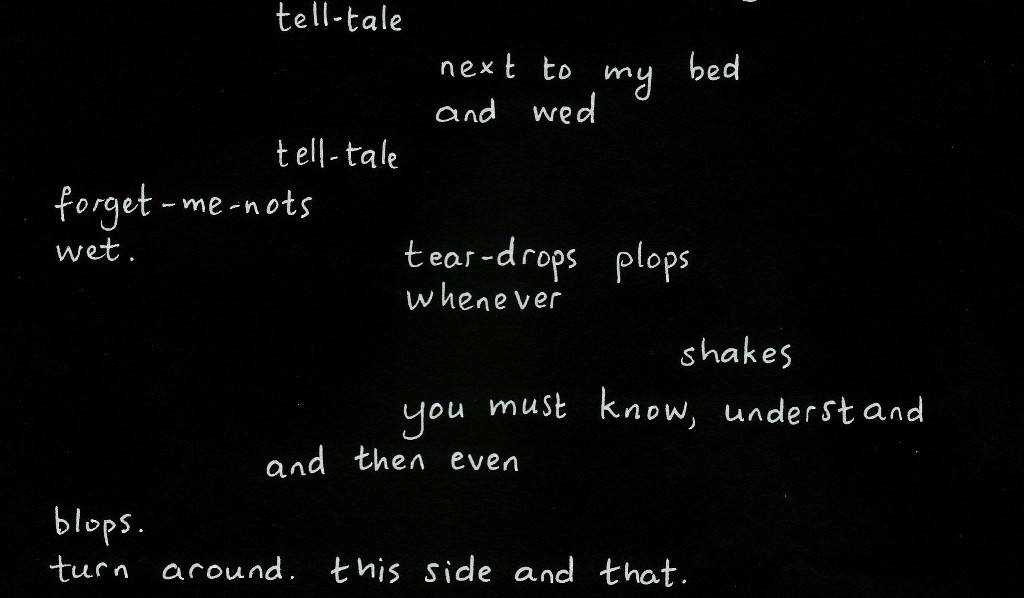 tell-tale
next to my bed
and wed
tell-tale
forget-me-nots
wet.
tear-drops plops
whenever
shakes
you must know, understand
and then even
blops.
turn around. this side and that.